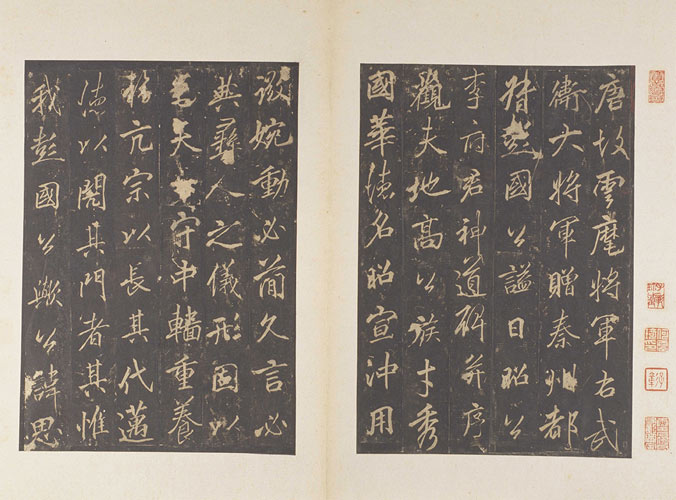 唐故雲麾將軍右武
衛大將軍贈秦州都
督彭國公謚曰昭公
李府君神道碑并序
觀夫地高公族才秀
國華德名昭宣沖用
微婉動必簡久言必
典彝人之儀形固以
守中轖重養
福亢宗以長其代邁
德以閎其門者其惟
我彭國公歟公諱思